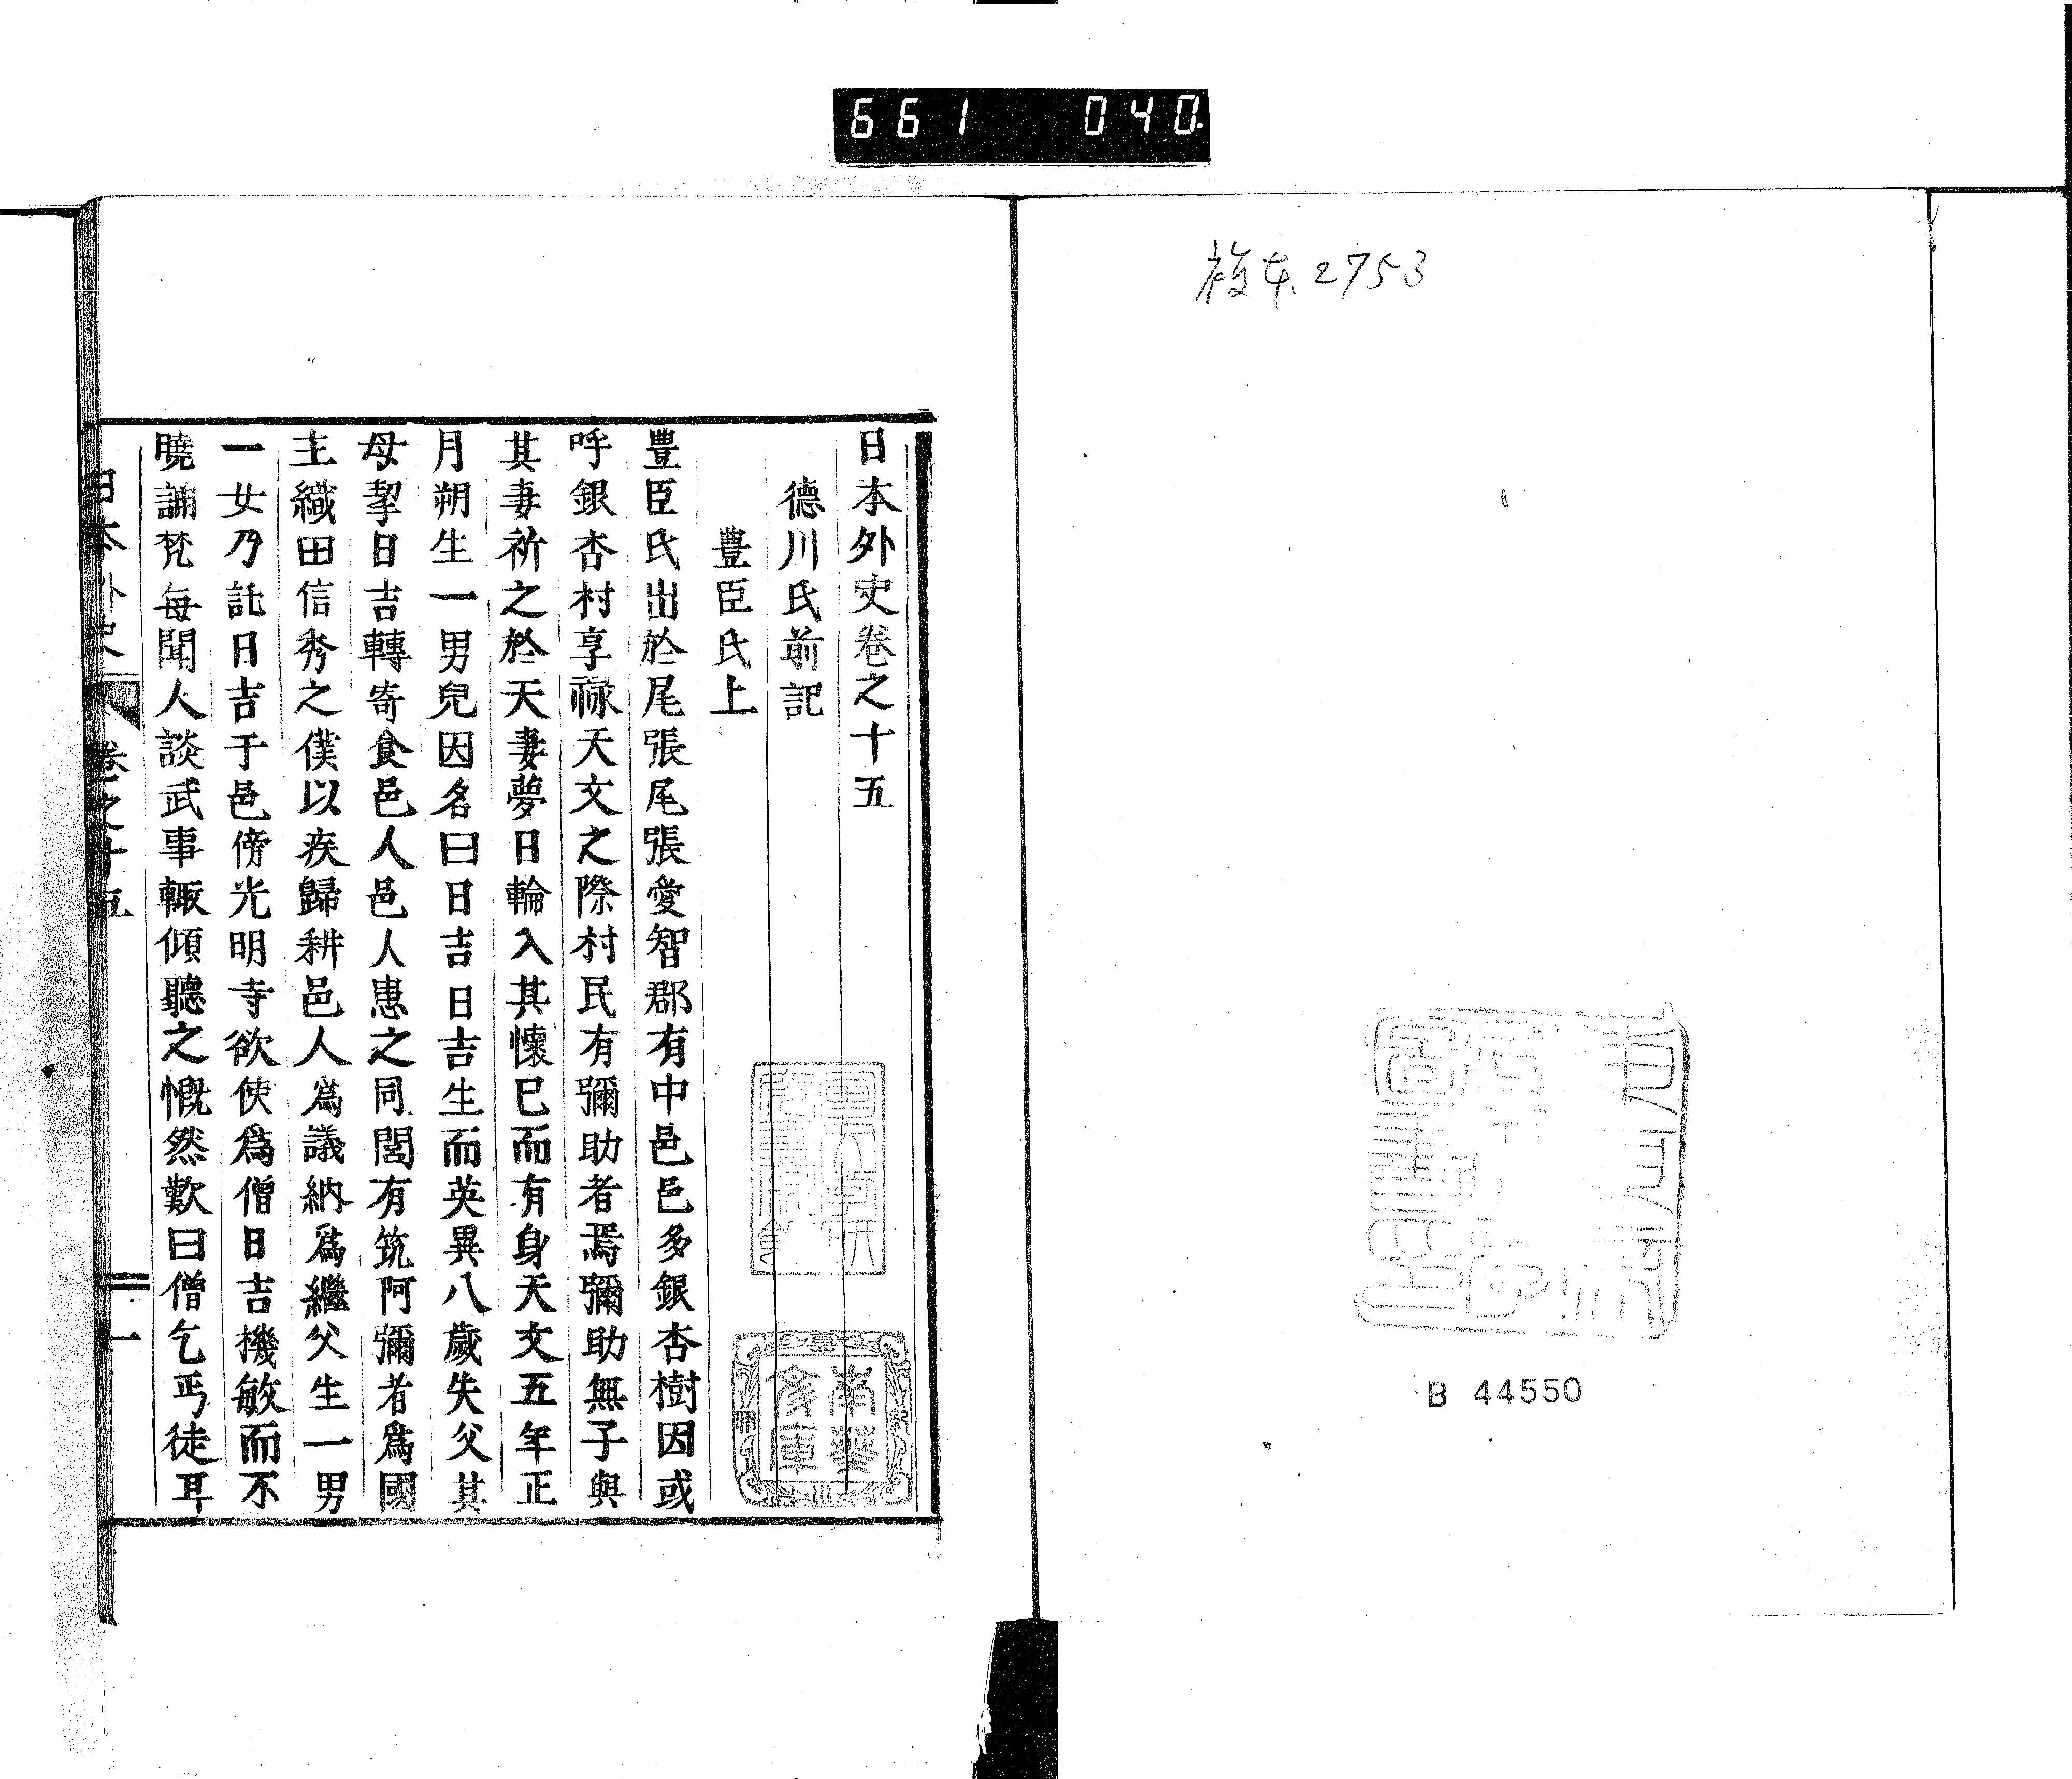 661 040
複本2753
B 44550
日本外史卷之十五
德川氏前記
豊臣氏上
豊臣氏出於尾張尾張愛智郡有中邑邑多銀杏樹因或
呼銀杏村享祿天文之際村民有彌助者焉彌助無子與
其妻祈之於天妻夢日輪入其懷已而有身天文五年正
月朔生一男兒因名曰日吉日吉生而英異八歲失父其
母挈日吉轉寄食邑人邑人患之同閭有筑阿彌者爲國
主織田信秀之僕以疾歸耕邑人爲議納爲繼父生一男
一女乃託日吉于邑傍光明寺欲使爲僧日吉機敏而不
曉誦梵每聞人談武事輙傾聽之慨然歎曰僧乞丐徒耳
日本外史 卷之十五 一
南葵文庫